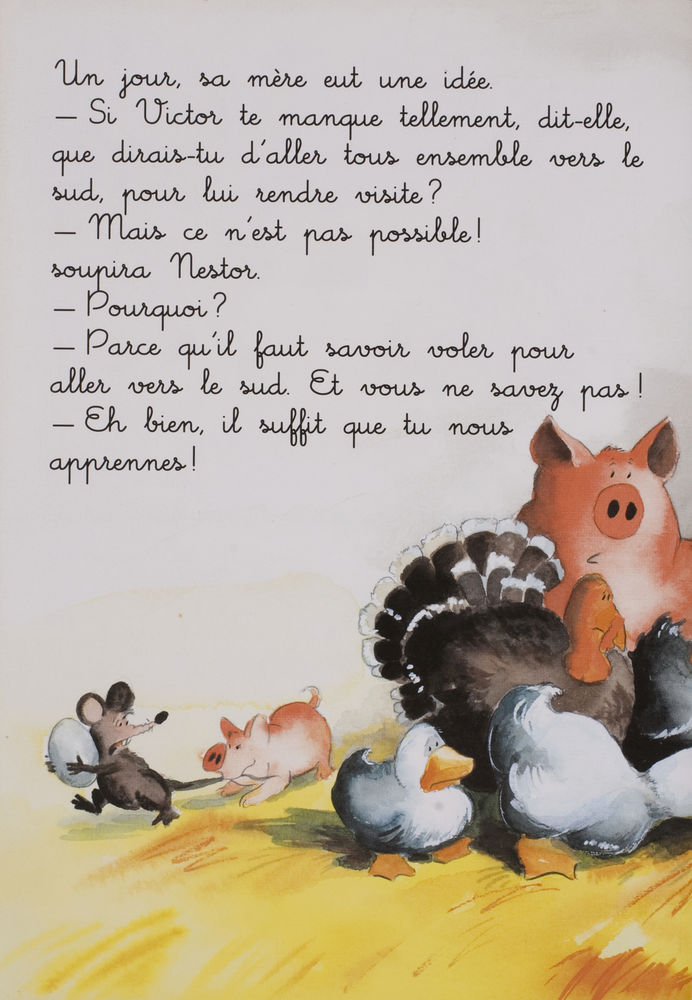 Un jour, sa mère eut une idée.
– Si Victor te manque tellement, dit-elle,
que dirais-tu d'aller tous ensemble vers le
sud, pour lui rendre visite ?
– Mais ce n'est pas possible !
soupira Nestor.
– Pourquoi ?
– Parce qu'il faut savoir voler pour
aller vers le sud. Et vous ne savez pas !
– Eh bien, il suffit que tu nous
apprennes !